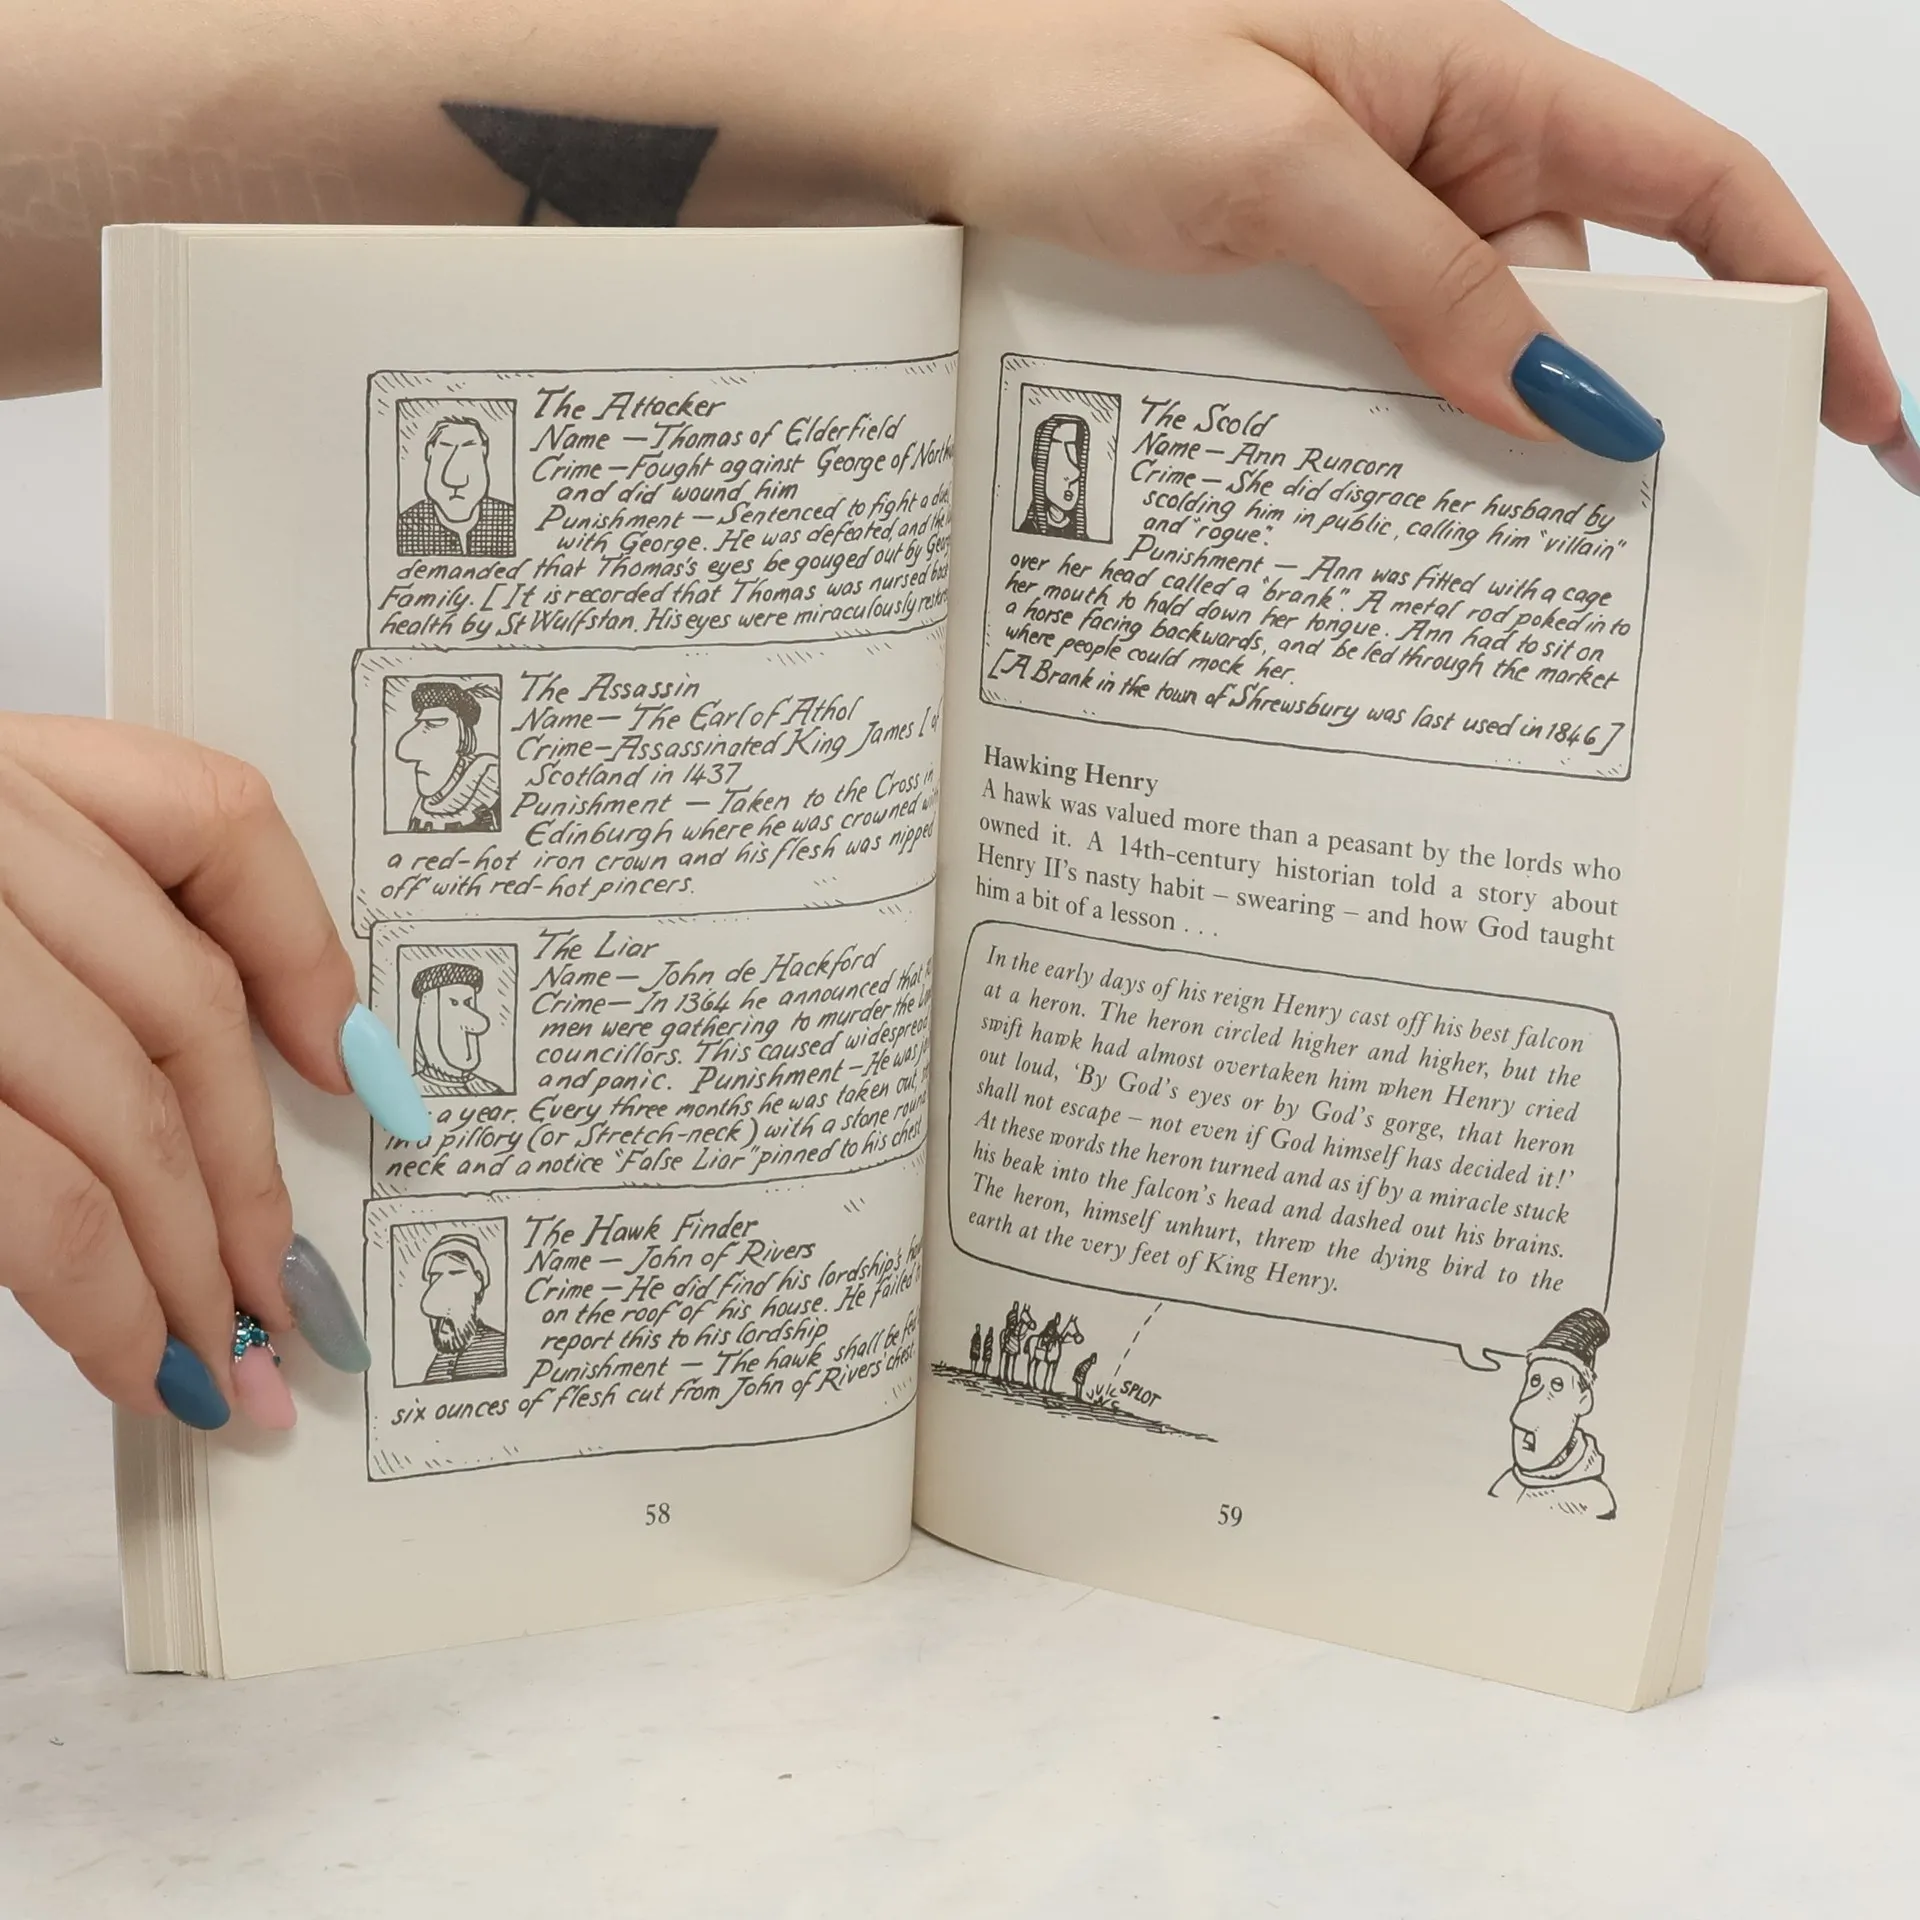 The Attacker
Name – Thomas of Elderfield
Crime – Fought against George of
and did wound him
Punishment – Sentenced to fight a
with George. He was defeated, and the
demanded that Thomas's eyes be gouged out by
Family. [It is recorded that Thomas was nursed
health by St Wulfstan. His eyes were miraculously
The Assassin
Name – The Earl of Athol
Crime – Assassinated King James I of
Scotland in 1437
Punishment – Taken to the Cross in
Edinburgh where he was crowned with
a red-hot iron crown and his flesh was nipped
off with red-hot pincers.
The Liar
Name – John de Hackford
Crime – In 1364 he announced that
men were gathering to murder the
councillors. This caused widespread
and panic. Punishment – He was
a year. Every three months he was taken out,
in a pillory (or Stretch-neck) with a stone round
neck and a notice "False Liar" pinned to his chest
The Hawk Finder
Name – John of Rivers
Crime – He did find his lordship's
on the roof of his house. He failed
report this to his lordship
Punishment – The hawk shall be fed
six ounces of flesh cut from John of Rivers' chest.
58
The Scold
Name – Ann Runcorn
Crime – She did disgrace her husband by
scolding him in public, calling him "villain"
and "rogue".
Punishment – Ann was fitted with a cage
over her head called a "brank". A metal rod poked in to
her mouth to hold down her tongue. Ann had to sit on
a horse facing backwards, and be led through the market
where people could mock her.
[A Brank in the town of Shrewsbury was last used in 1846]
Hawking Henry
A hawk was valued more than a peasant by the lords who
owned it. A 14th-century historian told a story about
Henry II's nasty habit – swearing – and how God taught
him a bit of a lesson . . .
In the early days of his reign Henry cast off his best falcon
at a heron. The heron circled higher and higher, but the
swift hawk had almost overtaken him when Henry cried
out loud, 'By God's eyes or by God's gorge, that heron
shall not escape – not even if God himself has decided it!'
At these words the heron turned and as if by a miracle stuck
his beak into the falcon's head and dashed out his brains.
The heron, himself unhurt, threw the dying bird to the
earth at the very feet of King Henry.
SPLOT
59